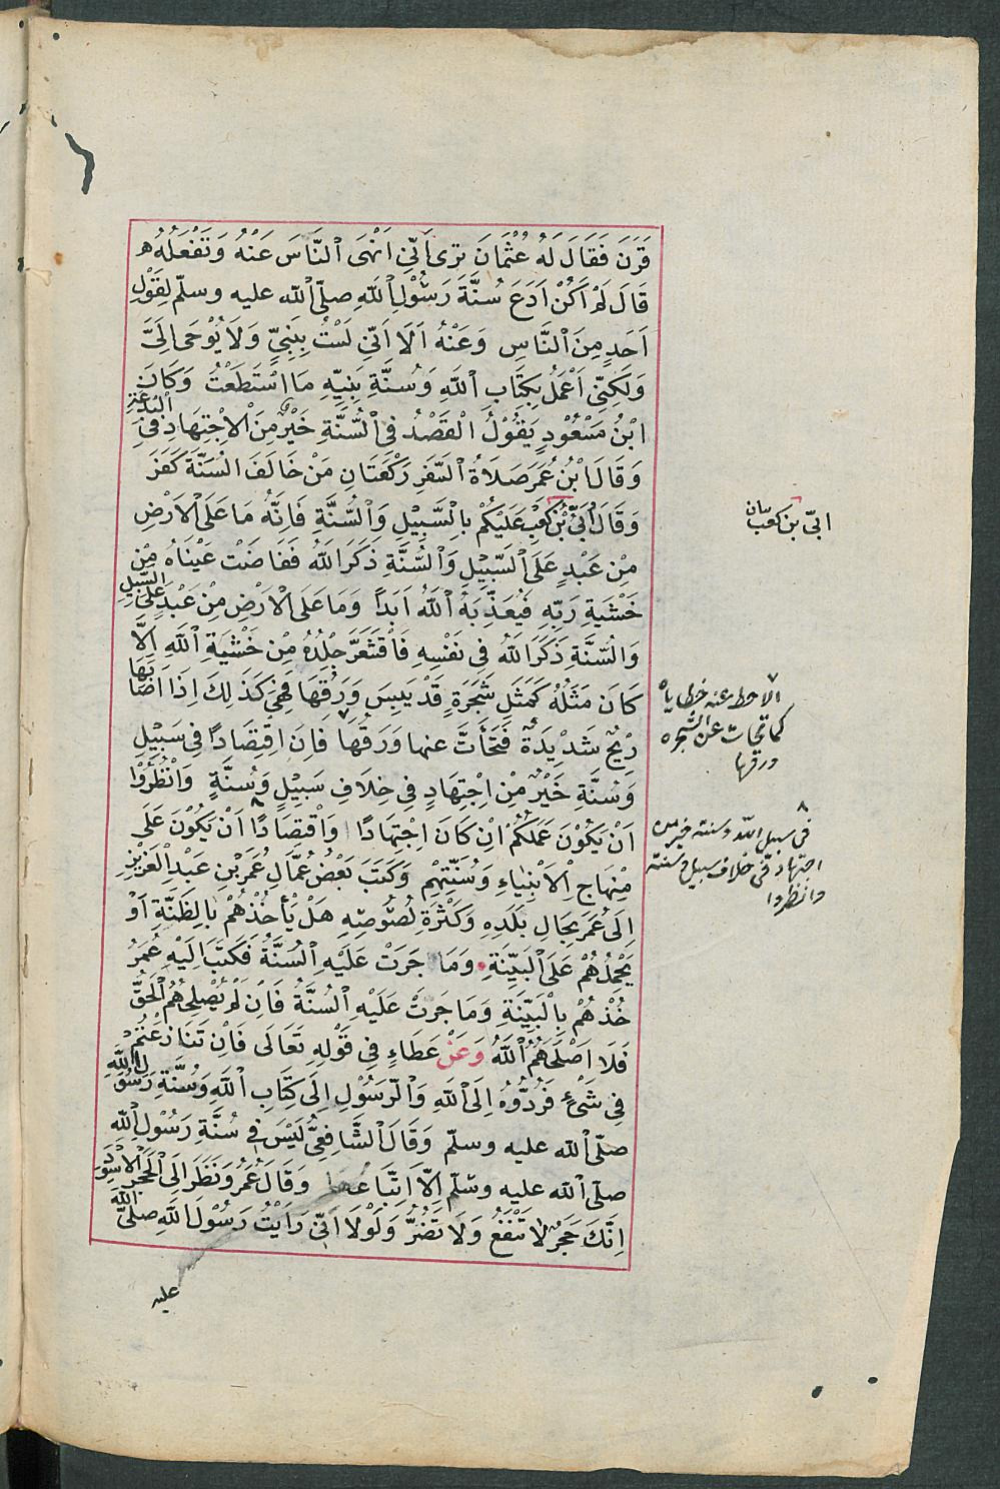 قَرَنَ فَقَالَ لَهُ عُثْمَانَ تَرٰى اَنِّي اَنْهَى النَّاسَ عَنْهُ وَتَفْعَلُهُ
قَالَ لَمْ اَكُنْ اَدَعَ سُنَّةَ رَسُوْلِ اللهِ صلّى الله عليه وسلّم لِقَوْلِ
اَحَدٍ مِنَ النَّاسِ وَعَنْهُ اَلَا اَنِّي لَسْتُ بِنَبِيٍّ وَلَا يُوْحَى اِلَىَّ
وَلٰكِنِّي اَعْمَلُ بِكِتَابِ اللهِ وَسُنَّةِ نَبِيِّهِ مَا اسْتَطَعْتُ وَكَانَ
ابْنُ مَسْعُوْدٍ يَقُوْلُ الْقَصْدُ فِي السُّنَّةِ خَيْرٌ مِنَ الْاِجْتِهَادِ فِي الْبِدْعَةِ
وَقَالَ ابْنُ عُمَرَ صَلَاةُ السَّفَرِ رَكْعَتَانِ مَنْ خَالَفَ السُّنَّةَ كَفَرَ
وَقَالَ اُبَىُّ بْنُ كَعْبٍ عَلَيْكُمْ بِالسَّبِيْلِ وَالسُّنَّةِ فَاِنَّهُ مَا عَلَى الْاَرْضِ
مِنْ عَبْدٍ عَلَى السَّبِيْلِ وَالسُّنَّةِ ذَكَرَ اللهَ فَفَاضَتْ عَيْنَاهُ مِنْ
خَشْيَةِ رَبِّهِ فَيُعَذِّبَهُ اللهُ اَبَدًا وَمَا عَلَى الْاَرْضِ مِنْ عَبْدٍ عَلَى السَّبِيلِ
وَالسُّنَّةِ ذَكَرَ اللهَ فِي نَفْسِهِ فَاقْشَعَرَّ جِلْدُهُ مِنْ خَشْيَةِ اللهِ اِلَّا
كَانَ مَثَلُهُ كَمَثَلِ شَجَرَةٍ قَدْ يَبِسَ وَرَقُهَا فَهِيَ كَذٰلِكَ اِذَا اَصَابَهَا
رِيْحٌ شَدِيْدَةٌ فَتَحَاتَّ عنها وَرَقُهَا ٧ فَاِنَّ اقْتِصَادًا فِي سَبِيْلٍ
وَسُنَّةٍ خَيْرٌ مِنْ اِجْتِهَادٍ فِي خِلَافِ سَبِيْلٍ وَسُنَّةٍ وَانْظُرُوْا
اَنْ يَكُوْنَ عَمَلُكُمْ اِنْ كَانَ اِجْتِهَادًا وَاقْتِصَادًا ٨ اَنْ يَكُوْنَ عَلَى
مِنْهَاجِ الْاَنْبِيَاءِ وَسُنَّتِهِمْ وَكَتَبَ بَعْضُ عُمَّالِ عُمَرَ بْنِ عَبْدِ الْعَزِيْزِ
اِلَى عُمَرَ بِحَالِ بَلَدِهِ وَكَثْرَةِ لُصُوْصِهِ هَلْ يَأْخُذُهُمْ بِالظِّنَّةِ اَوْ
يَحْمِلُهُمْ عَلَى الْبَيِّنَةِ وَمَا جَرَتْ عَلَيْهِ السُّنَّةُ فَكَتَبَ اِلَيْهِ عُمَرُ
خُذْهُمْ بِالْبَيِّنَةِ وَمَا جَرَتْ عَلَيْهِ السُّنَّةُ فَاِنْ لَمْ يُصْلِحْهُمُ الْحَقُّ
فَلَا اَصْلَحَهُمُ اللهُ وَعَنْ عَطَاءٍ فِي قَوْلِهِ تَعَالَى فَاِنْ تَنَازَعْتُمْ
فِي شَيْءٍ فَرُدُّوْهُ اِلَى اللهِ وَالرَّسُوْلِ اِلَى كِتَابِ اللهِ وَسُنَّةِ رَسُوْلِ اللهِ
صلّى الله عليه وسلّم وَقَالَ الشَّافِعِيُّ لَيْسَ فِي سُنَّةِ رَسُوْلِ اللهِ
صلّى الله عليه وسلّم اِلَّا اتِّبَاعُهَا وَقَالَ عُمَرُ وَنَظَرَ اِلَى الْحَجَرِ الْاَسْوَدِ
اِنَّكَ حَجَرٌ لَا تَنْفَعُ وَلَا تَضُرُّ وَلَوْلَا اَنِّي رَاَيْتُ رَسُوْلَ اللهِ صلّى الله
عليه
ابىّ بن كعب
٧ الا حط عنه خطاياه
كما تحات عن الشجره
ورقها
٨
فى سبيل الله وسنته خير من
اجتهاد فى خلاف سبيل وسنته
وانظروا